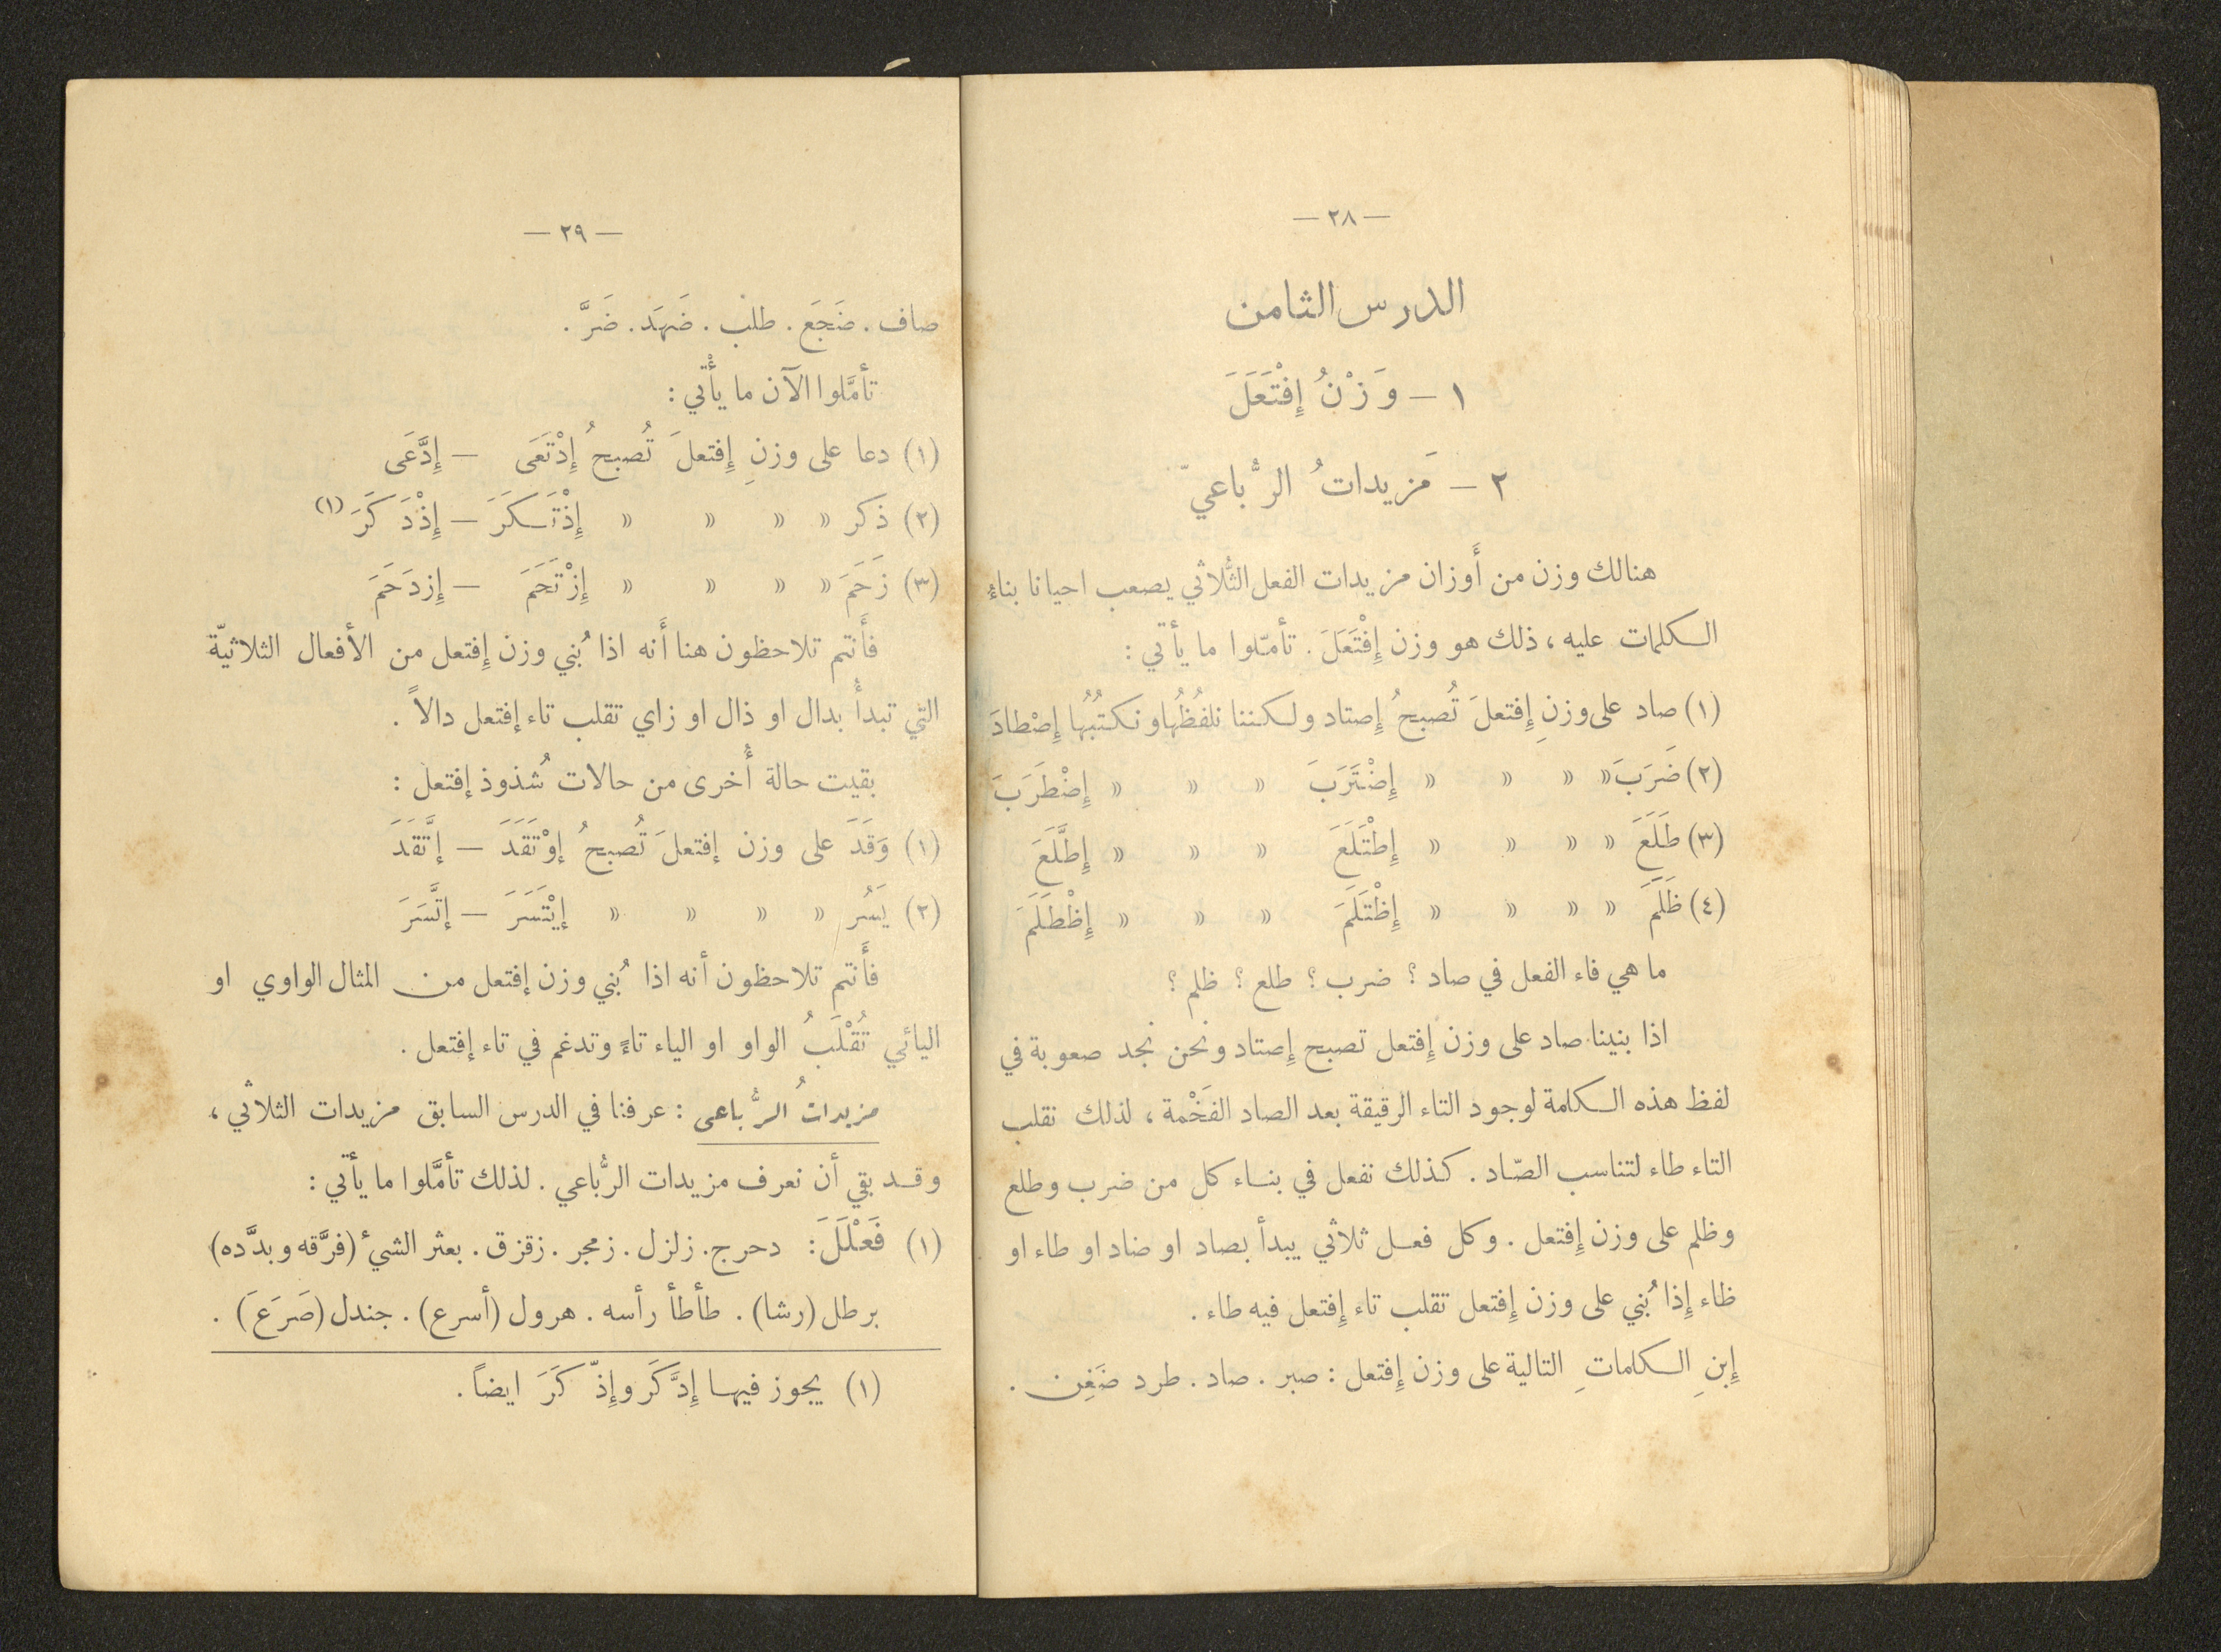 — ٢٨ —
الدرس الثامن
١ – وَزْنُ إِفْتَعَلَ
٢ – مَزيداتُ الرُّباعيّ
هنالك وزن من أَوزان مزيدات الفعل الثُّلاثي يصعب احيانا بناءُ
الكلمات عليه ، ذلك هو وزن إِفْتَعَلَ . تأمّلوا ما يأتي :
(١) صاد على وزنِ إِفتعلَ تُصبحُ إِصتاد ولكننا نلفُظُها ونكتُبُها إِصْطادَ
(٢) ضَرَبَ » » » » إِضْتَرَبَ » » » إِضْطَرَبَ
(٣) طَلَعَ » » » » إِطْتَلَعَ » » » إِطَّلَعَ
(٤) ظَلَمَ » » » » إِظْتَلَمَ » » » إِظْطَلَمَ
ما هي فاء الفعل في صاد ؟ ضرب ؟ طلع ؟ ظلم ؟
اذا بنينا صاد على وزن إِفتعل تصبح إِصتاد ونحن نجد صعوبة في
لفظ هذه الكلمة لوجود التاء الرقيقة بعد الصاد الفَخْمة ، لذلك نقلب
التاء طاء لتناسب الصّاد . كذلك نفعل في بناء كل من ضرب وطلع
وظلم على وزن إِفتعل . وكل فعل ثلاثي يبدأ بصاد او ضاد او طاء او
ظاء إِذا بُني على وزن إِفتعل تقلب تاء إِفتعل فيه طاء .
إِبنِ الكلماتِ التالية على وزن إِفتعل : صبر . صاد . طرد ضَغِن .
— ٢٩ —
صاف . ضَجَعَ . طلب . ضَهَد . ضَرَّ .
تأمَّلوا الآن ما يأْتي :
(١) دعا على وزنِ إِفتعلَ تُصبحُ إِدْتَعَى – إِدَّعَى
(٢) ذكر » » » » إِذْتَكَرَ – إِذْدَكَرَ (١)
(٣) زَحَمَ » » » » إِزْتَحَمَ – إِزدَحَمَ
فأَنتم تلاحظون هنا أَنه اذا بُني وزن إِفتعل من الأفعال الثلاثيّة
التي تبدأُ بدال او ذال او زاي تقلب تاء إفتعل دالاً .
بقيت حالة أُخرى من حالات شُذوذ إفتعل :
(١) وَقَدَ على وزن إفتعلَ تُصبحُ إوْتَقَدَ – إتَّقَدَ
(٢) يَسُر » » » » إيْتَسَرَ – إتَّسَرَ
فأَنتم تلاحظون أنه اذا بُني وزن إفتعل من المثال الواوي او
اليائي تُقْلَبُ الواو او الياء تاءً وتدغم في تاء إفتعل .
مزيداتُ الرُّباعي : عرفنا في الدرس السابق مزيدات الثلاثي ،
وقد بقي أن نعرف مزيدات الرُّباعي . لذلك تأمَّلوا ما يأتي :
(١) فَعْلَلَ : دحرج . زلزل . زمجر . زقزق . بعثر الشيءَ (فرَّقه وبدَّده)
برطل (رشا) . طأطأ رأسه . هرول (أسرع) . جندل (صَرَعَ) .
(١) يجوز فيها إِدَّكَرَ وإِذّكَرَ ايضاً .